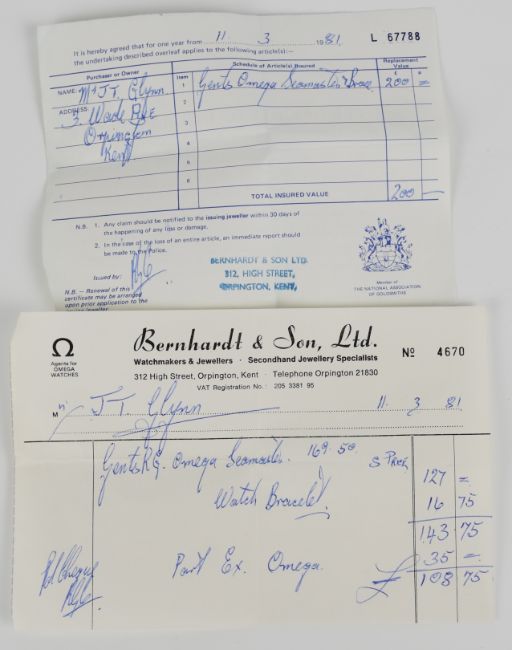 It is hereby agreed that for one year from 11 3 1981 L 67788
the undertaking described overleaf applies to the following article(s):—
Purchaser or Owner Item Schedule of Article(s) Insured Replacement Value
£
NAME: Mr J T Glynn 1 Gents Omega Seamaster & Brac. 200 =
ADDRESS: 2
3
Orpington
Kent 4
5
6
TOTAL INSURED VALUE 200 —
N.B. 1. Any claim should be notified to the issuing jeweller within 30 days of
the happening of any loss or damage.
2. In the case of the loss of an entire article, an immediate report should
be made to the Police.
Issued by:
BERNHARDT & SON LTD.
312, HIGH STREET,
ORPINGTON, KENT.
Member of
THE NATIONAL ASSOCIATION
OF GOLDSMITHS
N.B. — Renewal of this
certificate may be arranged
upon prior application to the
Ω
Agents for
OMEGA
WATCHES
Bernhardt & Son, Ltd.
Watchmakers & Jewellers · Secondhand Jewellery Specialists
312 High Street, Orpington, Kent · Telephone Orpington 21830
VAT Registration No.: 205 3381 95
No 4670
Mr J T Glynn 11 3 81
Gents R.G. Omega Seamaster. 169.50 S Price 127 =
Watch Bracelet 16 75
143 75
Part Ex. Omega. 35 =
£ 108 75
Pd Cheque